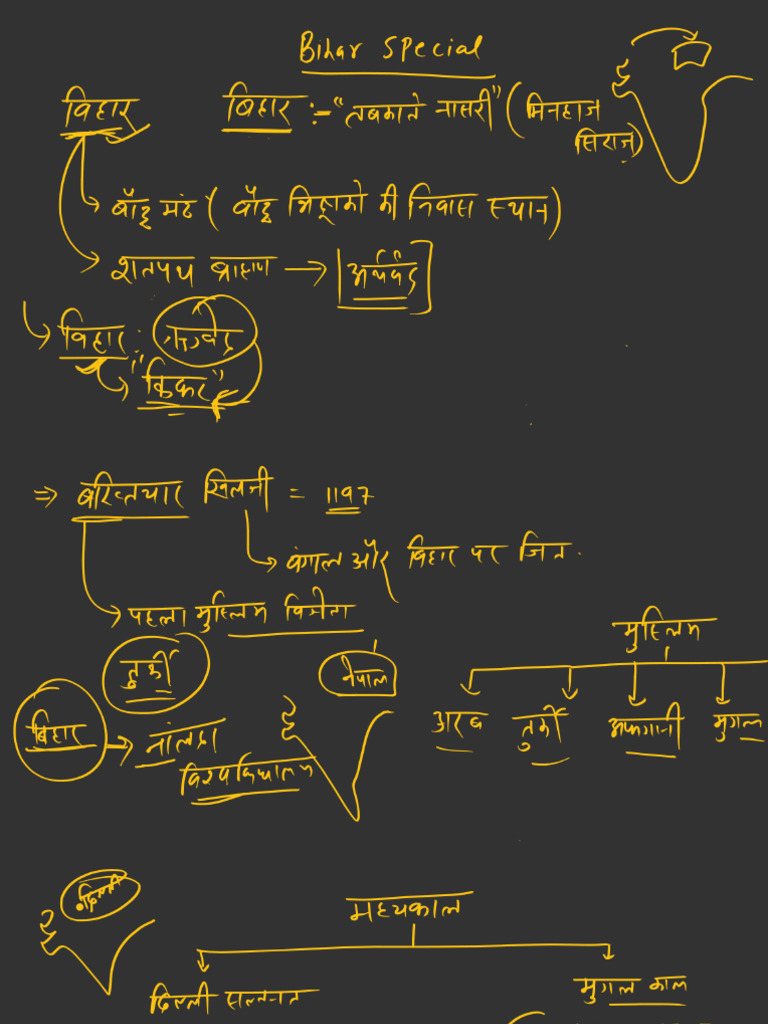 Bihar Special
बिहार बिहार :- "तबकाते नासरी" (मिनहाज
सिराज)
बौद्ध मठ ( बौद्ध भिक्षुको की निवास स्थान)
शतपथ ब्राह्मण → अथर्ववेद
बिहार : ऋग्वेद
"किकट"
⇒ बख्तियार खिलजी = 1197
बंगाल और बिहार पर जित.
पहला मुस्लिम विजेता
मुस्लिम
तुर्की
नेपाल
अरब तुर्की अफगानी मुगल
बिहार → नांलदा
विश्वविद्यालय
दिल्ली
मध्यकाल
दिल्ली सल्तनत मुगल काल